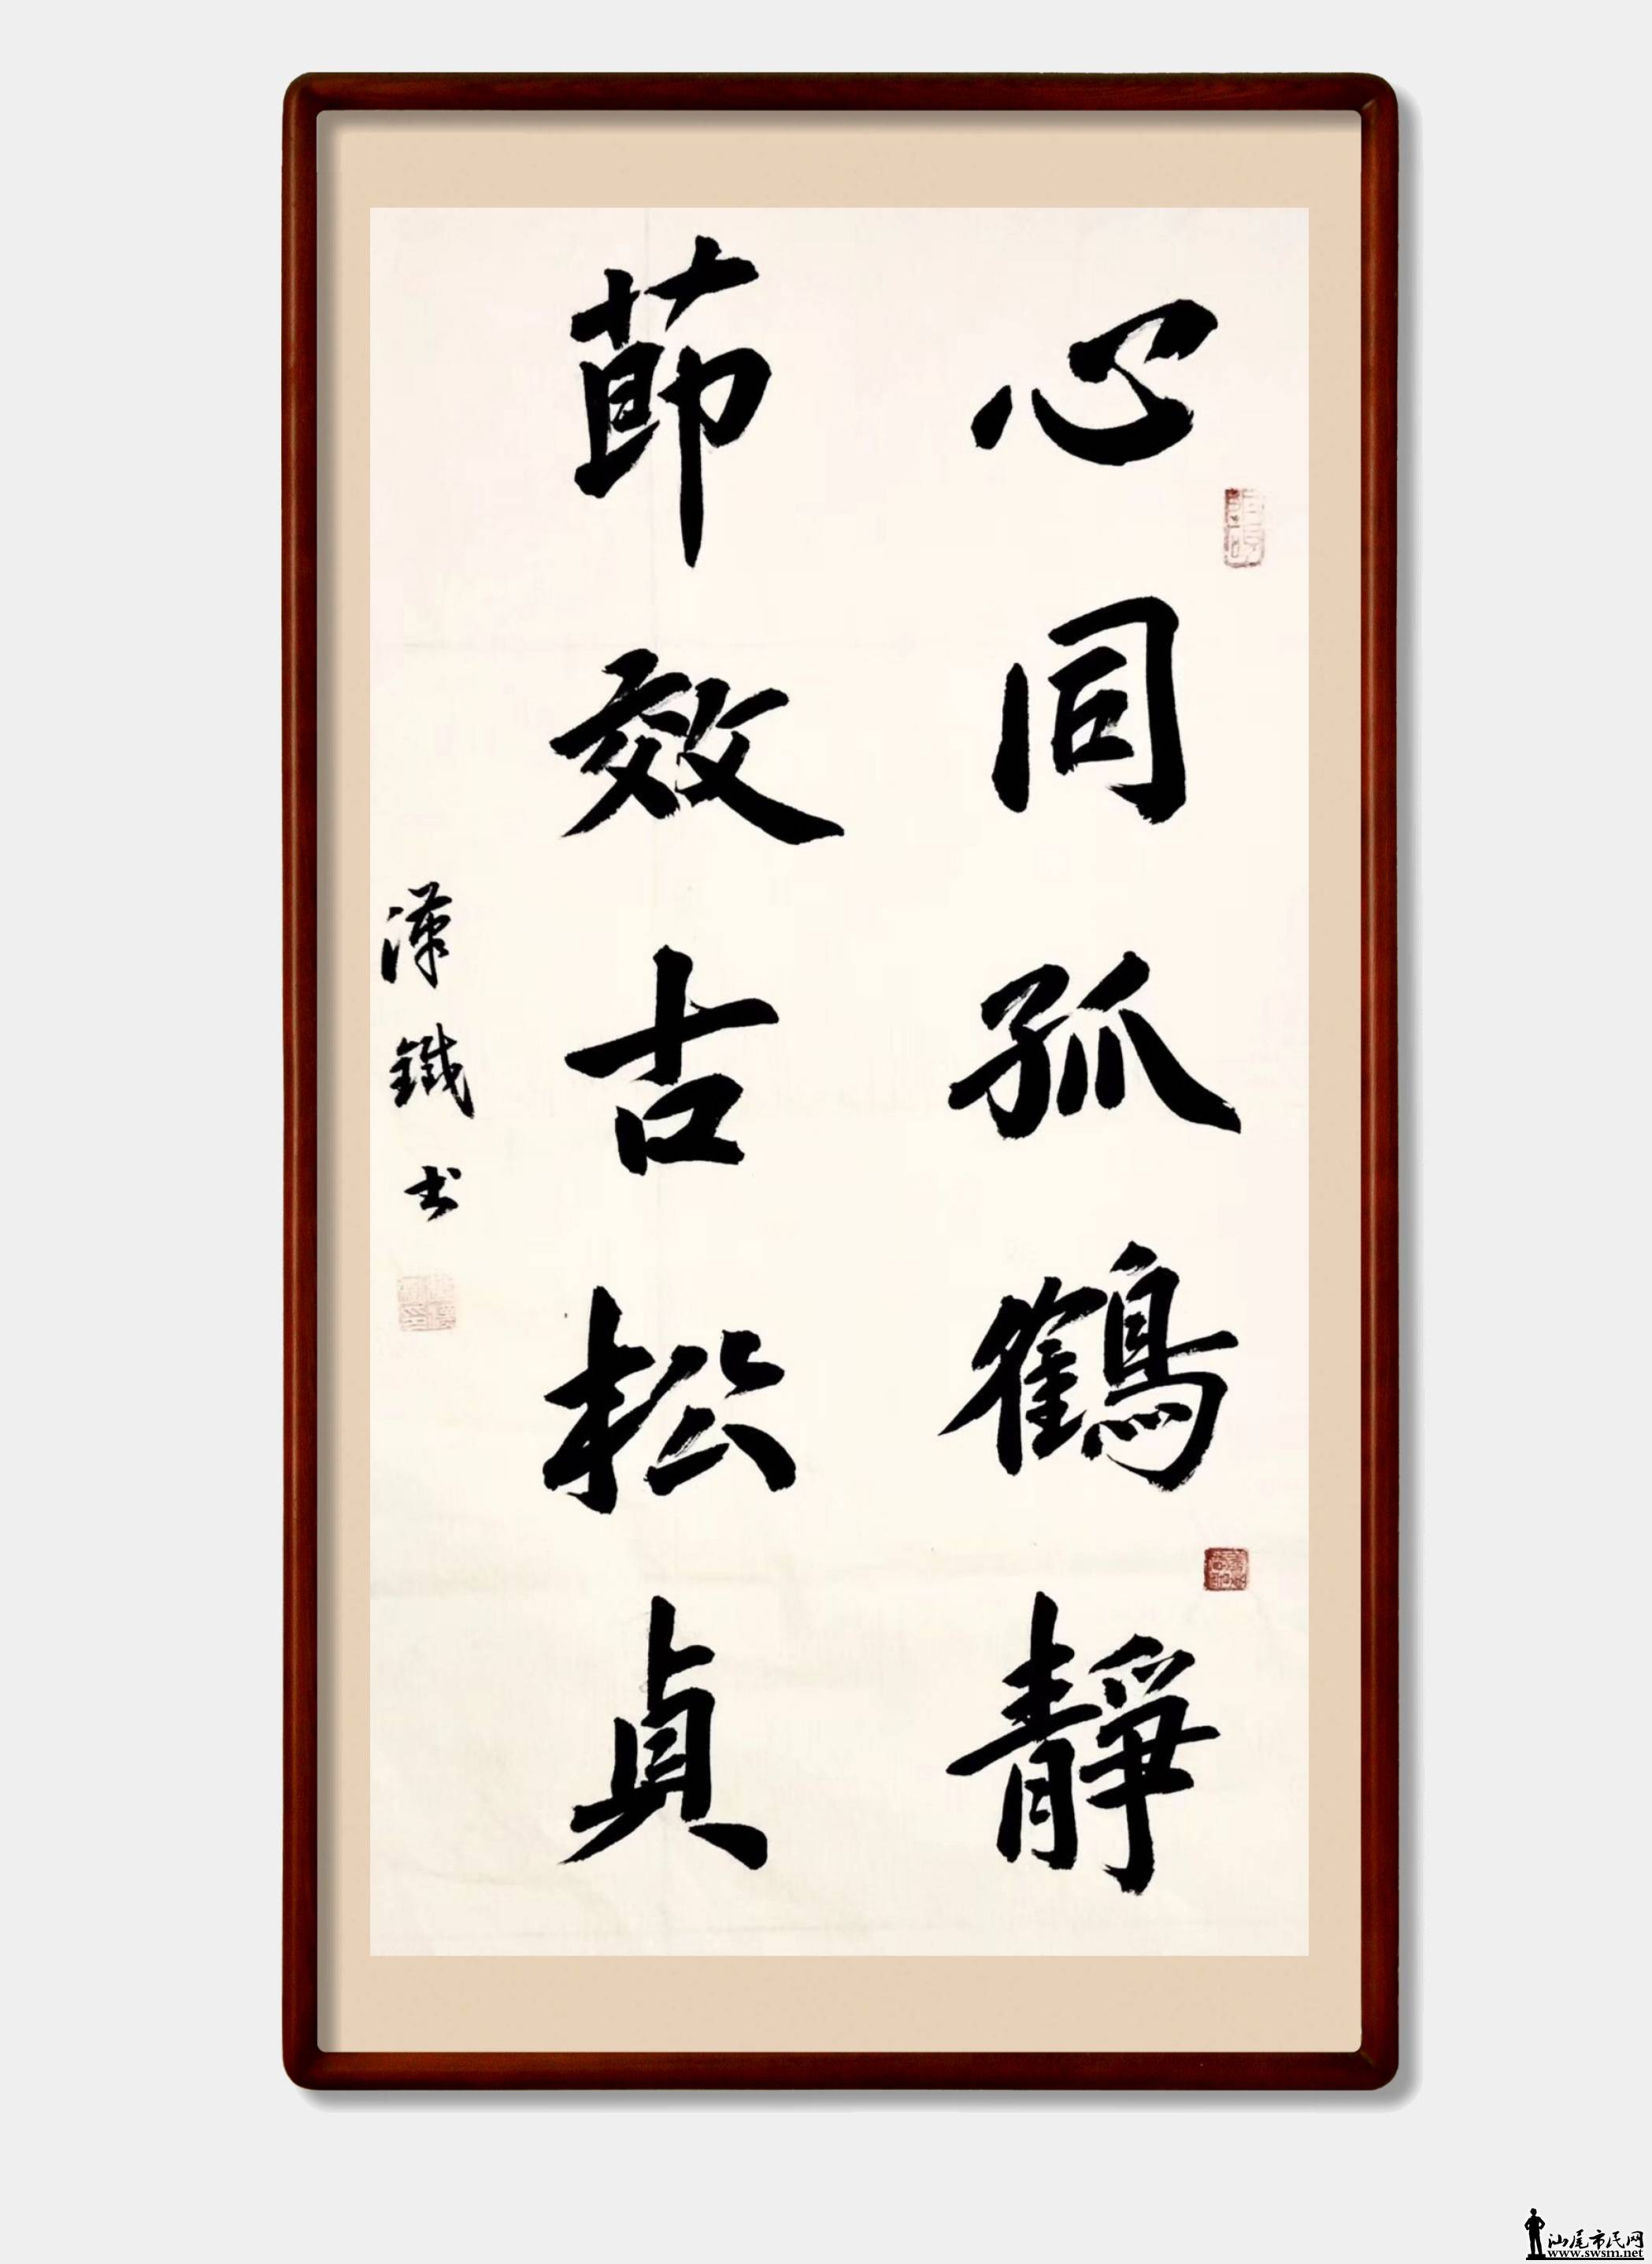 心同孤鶴靜
節效古松貞
漢鐵书
汕尾市民网
www.swsm.net